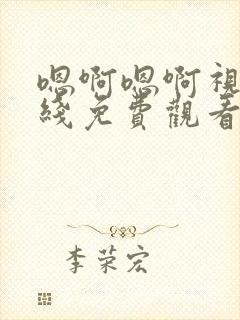 嗯啊嗯啊視
綫免費觀看
李荣宏